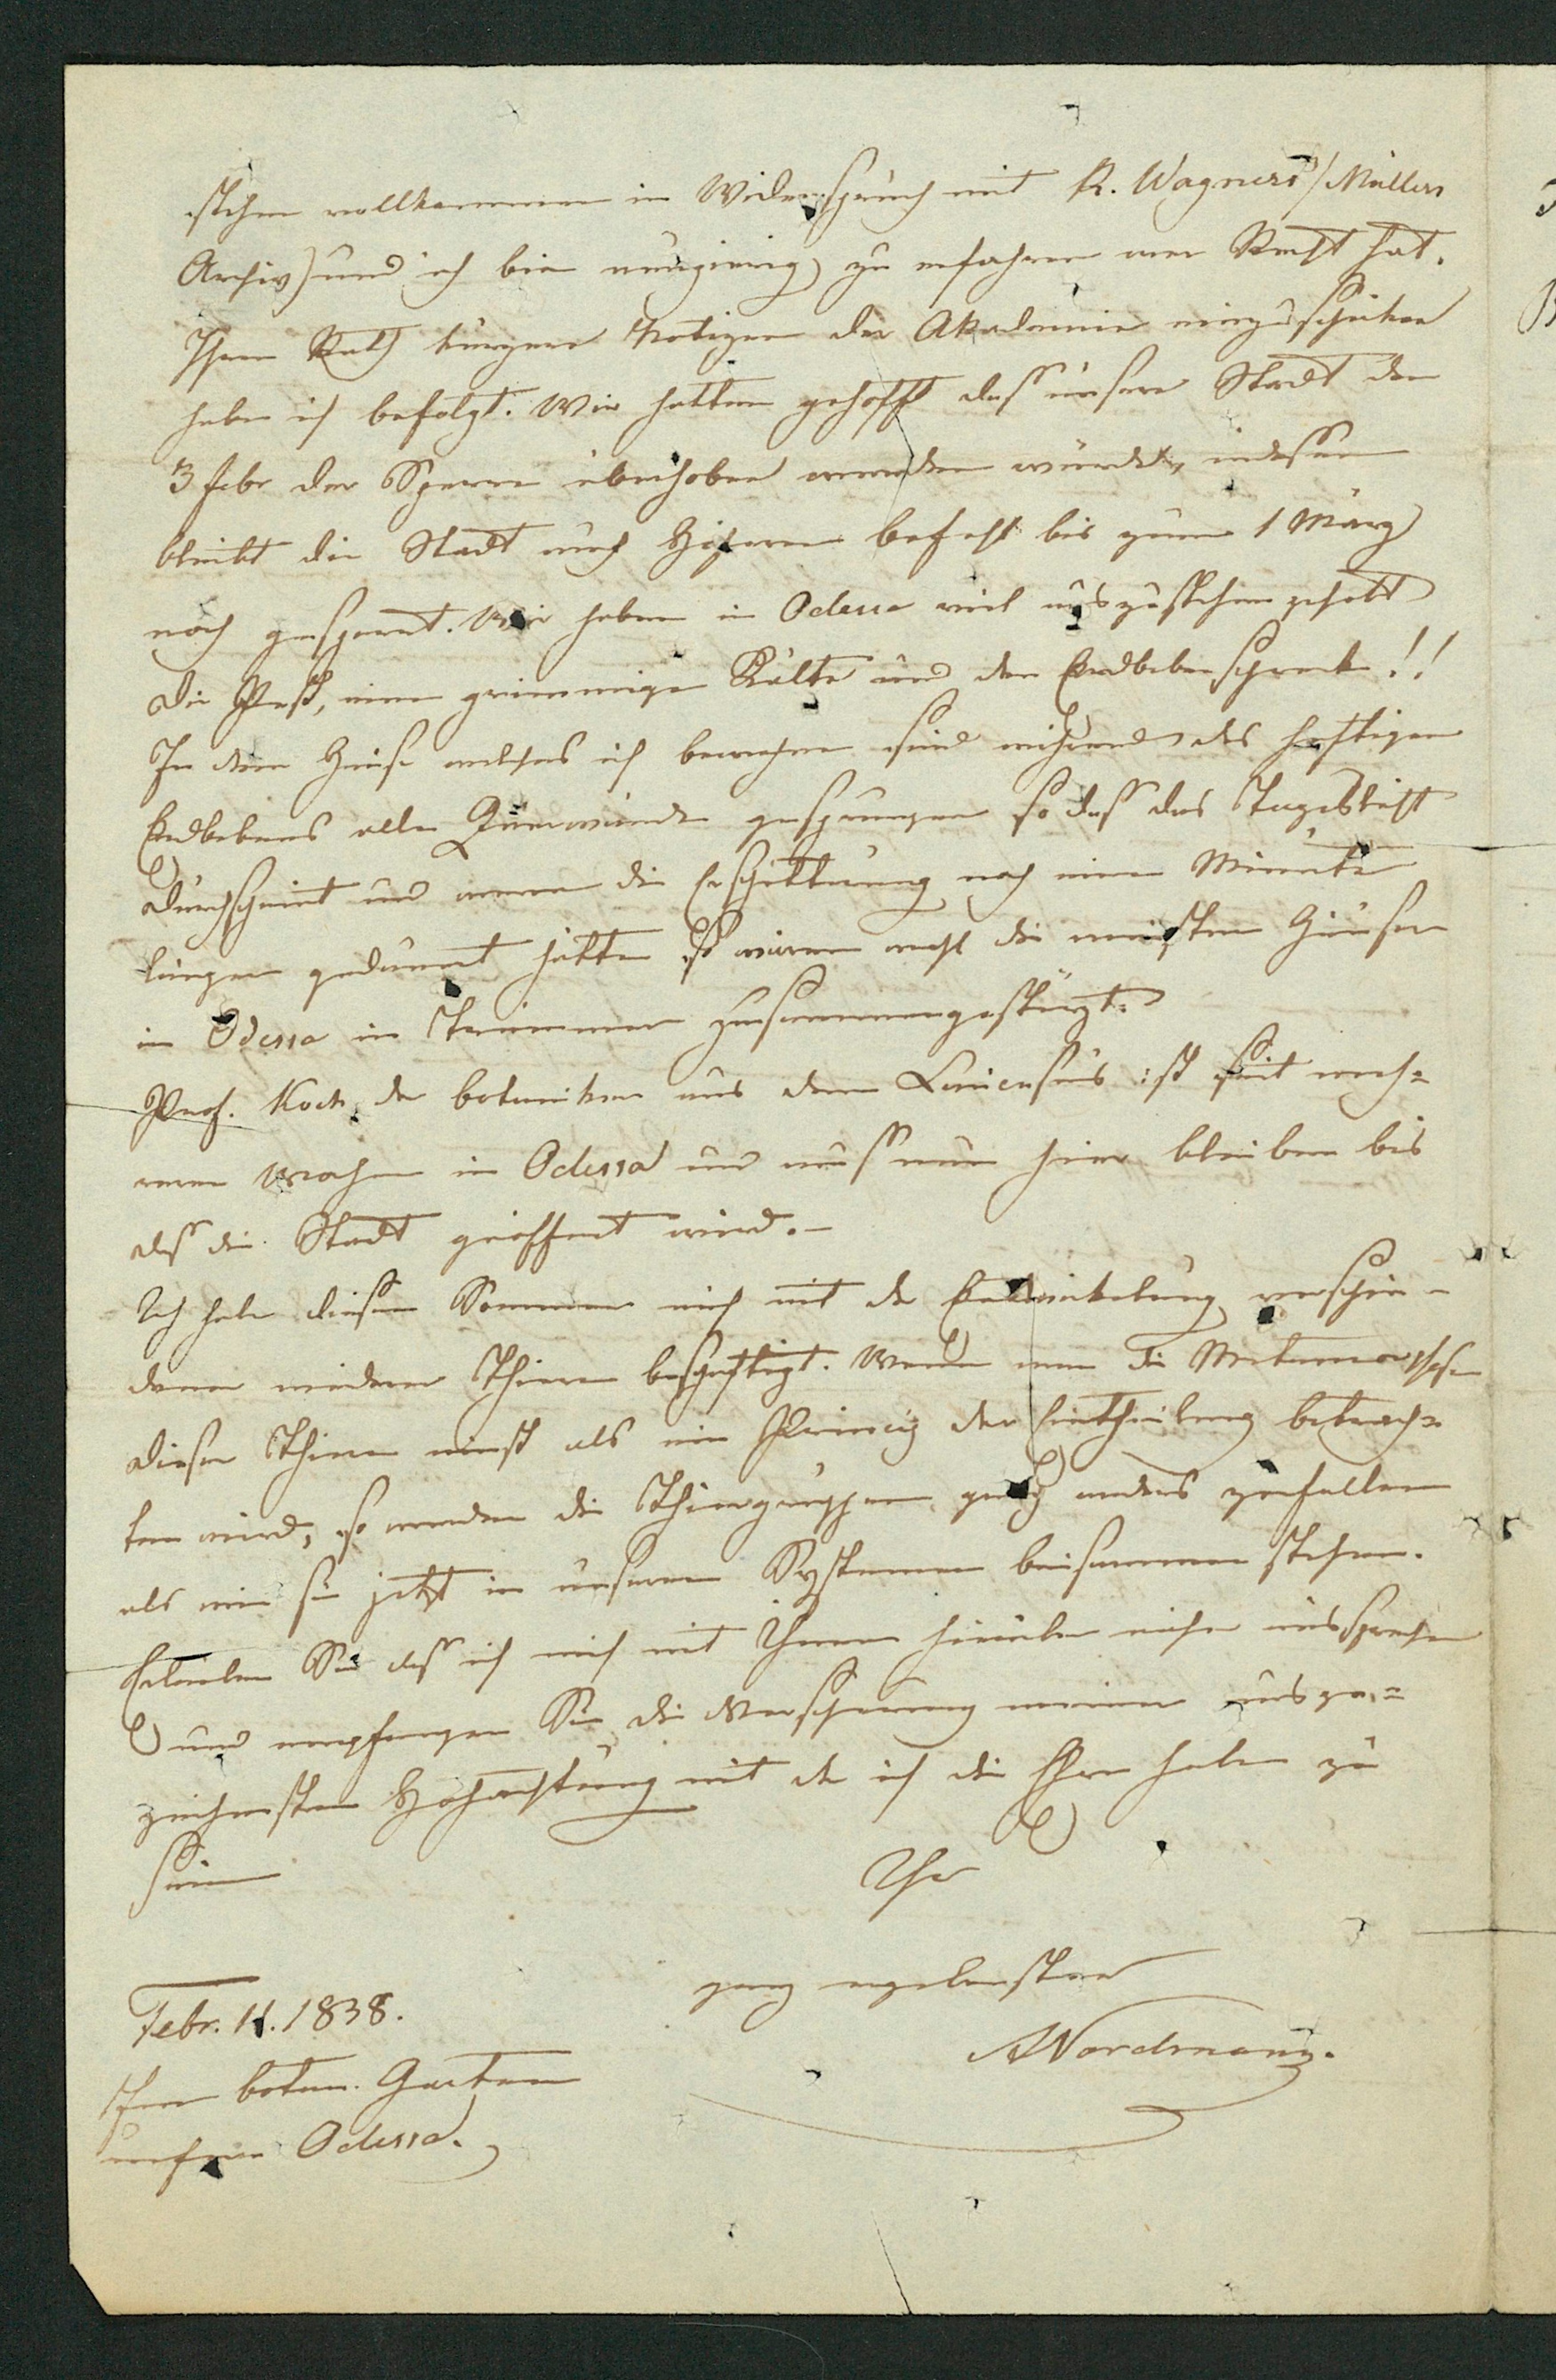 stehen vollkommen in Widerspruch mit R. Wagners (Müllers
Archiv) und ich bin neugierig zu erfahren wer Recht hat.
Ihren Rath kürzere Notizen der Akademie einzuschicken
habe ich befolgt. Wir hatten gehofft dass unsere Stadt den
3 Febr der Sperre überhoben werden würde, indessen
bleibt die Stadt nach Höherem befehl bis zum 1 März
noch gesperrt. Wir haben in Odessa viel auszustehen gehabt
die Pest, eine grimmige Kälte und den Erdbebenschreck!!
In dem Hause welches ich bewohne sind während des heftigen
Erdbebens alle Querwände gesprungen so dass das Tageslicht
durchscheint und wenn die Erschütterung noch eine Minute
länger gedauert hätte so wären wohl die meisten Häuser
in Odessa in Trümmer zusammengestürzt.
Prof. Koch der botaniker aus dem Caucasus ist seit meh=
reren Wochen in Odessa und muss nun hier bleiben bis
dass die Stadt geöffnet wird. –
Ich habe diesen Sommer mich mit der Entwickelung verschie-
dener niederer Thiere beschäftigt. Wenn man die Metamorphosen
dieser Thiere einst als ein Princip der Eintheilung betrach=
ten wird, so werden die Thiergruppen ganz anders zerfallen
als wie sie jetzt in unseren Systemen beisammen stehen.
Erlauben Sie dass ich mich mit Ihnen hierüber näher ausspreche
und empfangen Sie die Versicherung meiner ausge=
zeichnesten Hochachtung mit der ich die Ehre habe zu
sein
Ihr
ganz ergebenster
ANordmann.
Febr. 11. 1838.
Im botan. Garten
unfern Odessa.